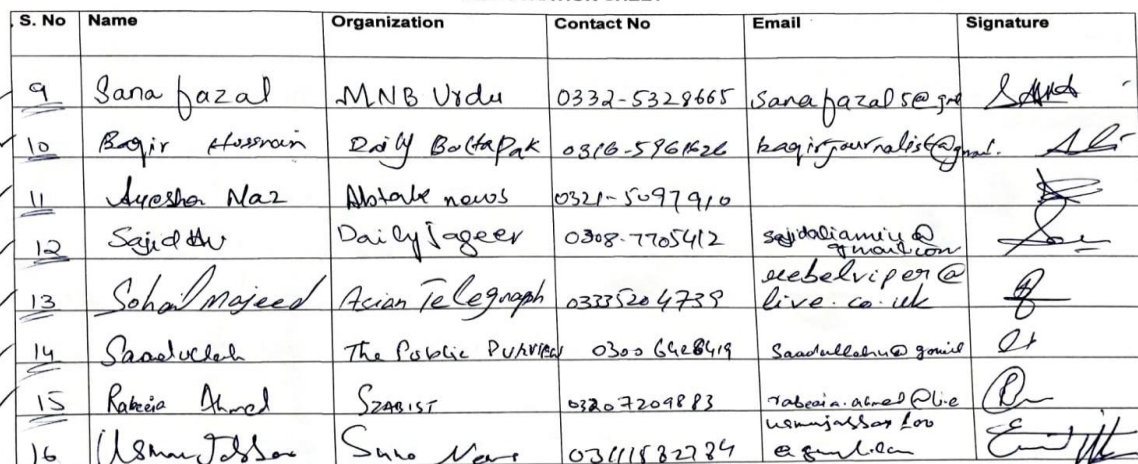 S. No Name Organization Contact No Email Signature
9 Sana fazal MNB Urdu 0332-5329665 sanafazal5@gm
10 Baqir Hussnain Daily BoltaPak 0316-5961626 baqirjournalist@gmail.
11 Ayesha Naz Abtak news 0321-5097910
12 Sajid Daily Jageer 0308-7705412 sajidaliamin@
gmail.com
13 Sohail Majeed Asian Telegraph 03335204739 rebelviper@
live.co.uk
14 Saadullah The Public Purview 03006428419 Saadullahu@gmail
15 Rabeeia Ahmed SZABIST 03207209883 rabeeia.ahmed@live
16 Usman 03411582784